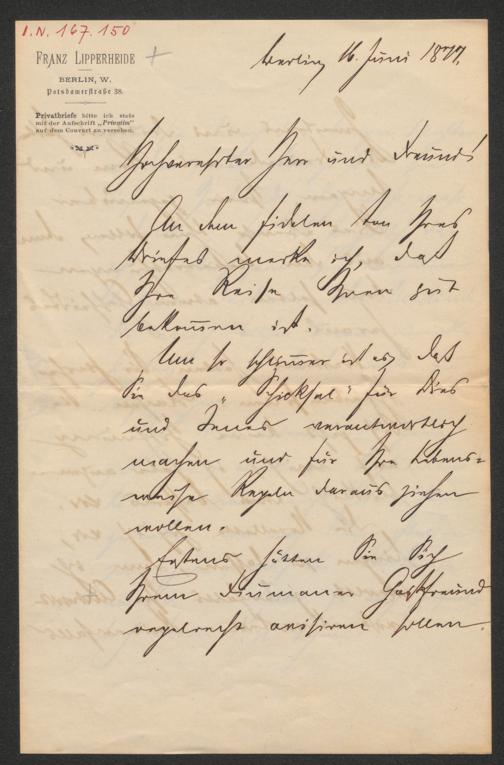 I.N. 167.150
FRANZ LIPPERHEIDE
BERLIN, W.
Potsdamerstraße 38.
Privatbriefe bitte ich stets
mit der Aufschrift „Privatim"
auf dem Couvert zu versehen.
Berlin, 16. Juni 1877.
Hochverehrter Herr und Freund!
An dem fidelen Ton Ihres
Briefes merke ich, daß
Ihre Reise Ihnen gut
bekommen ist.
Um so schlimmer ist es, daß
Sie das „Schicksal" für Dies
und Jenes verantwortlich
machen und für Ihre Lebens=
weise Regeln daraus ziehen
wollen.
Erstens hätten Sie Sich
Ihrem Fiumaner Gastfreund
regelrecht avisiren sollen.